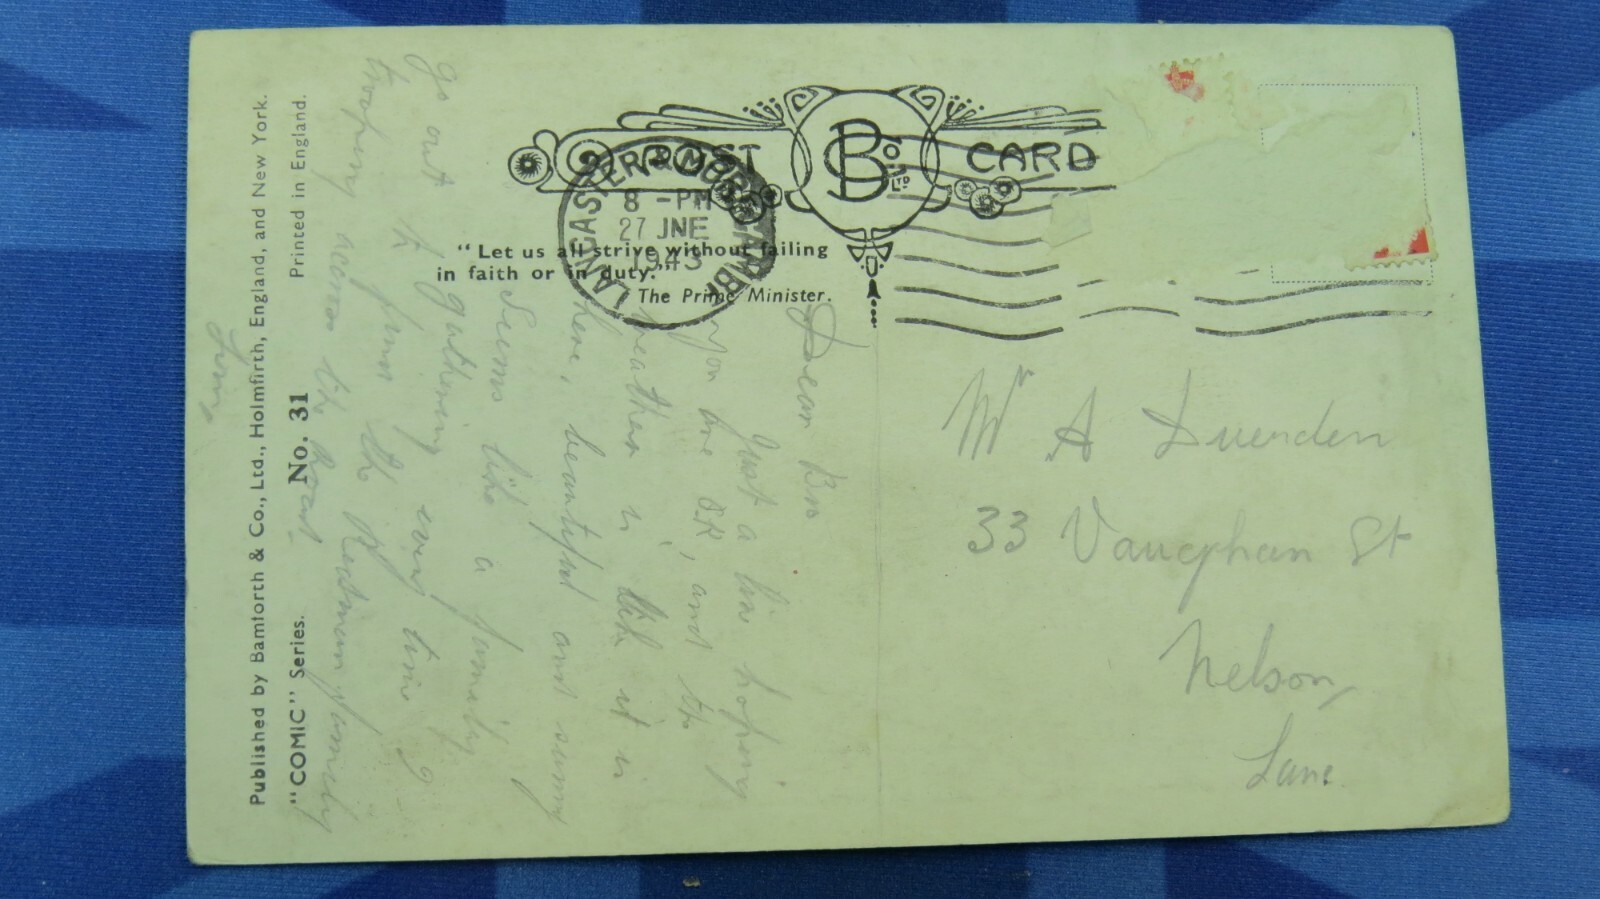 Published by Bamforth & Co., Ltd., Holmfirth, England, and New York.
"COMIC" Series. No. 31 Printed in England.
POST CARD
B & Co LTD
LANCASTER & MORECAMBE
8 - PM
27 JNE
1943
"Let us all strive without failing
in faith or in duty."
The Prime Minister.
Dear Bro
Just a line hoping
you are OK, and the
weather is like it is
here, beautiful and sunny
Seems like a family
gathering every time I
go out from the family
across the road.
Mr A Duerden
33 Vaughan St
Nelson
Lanc.